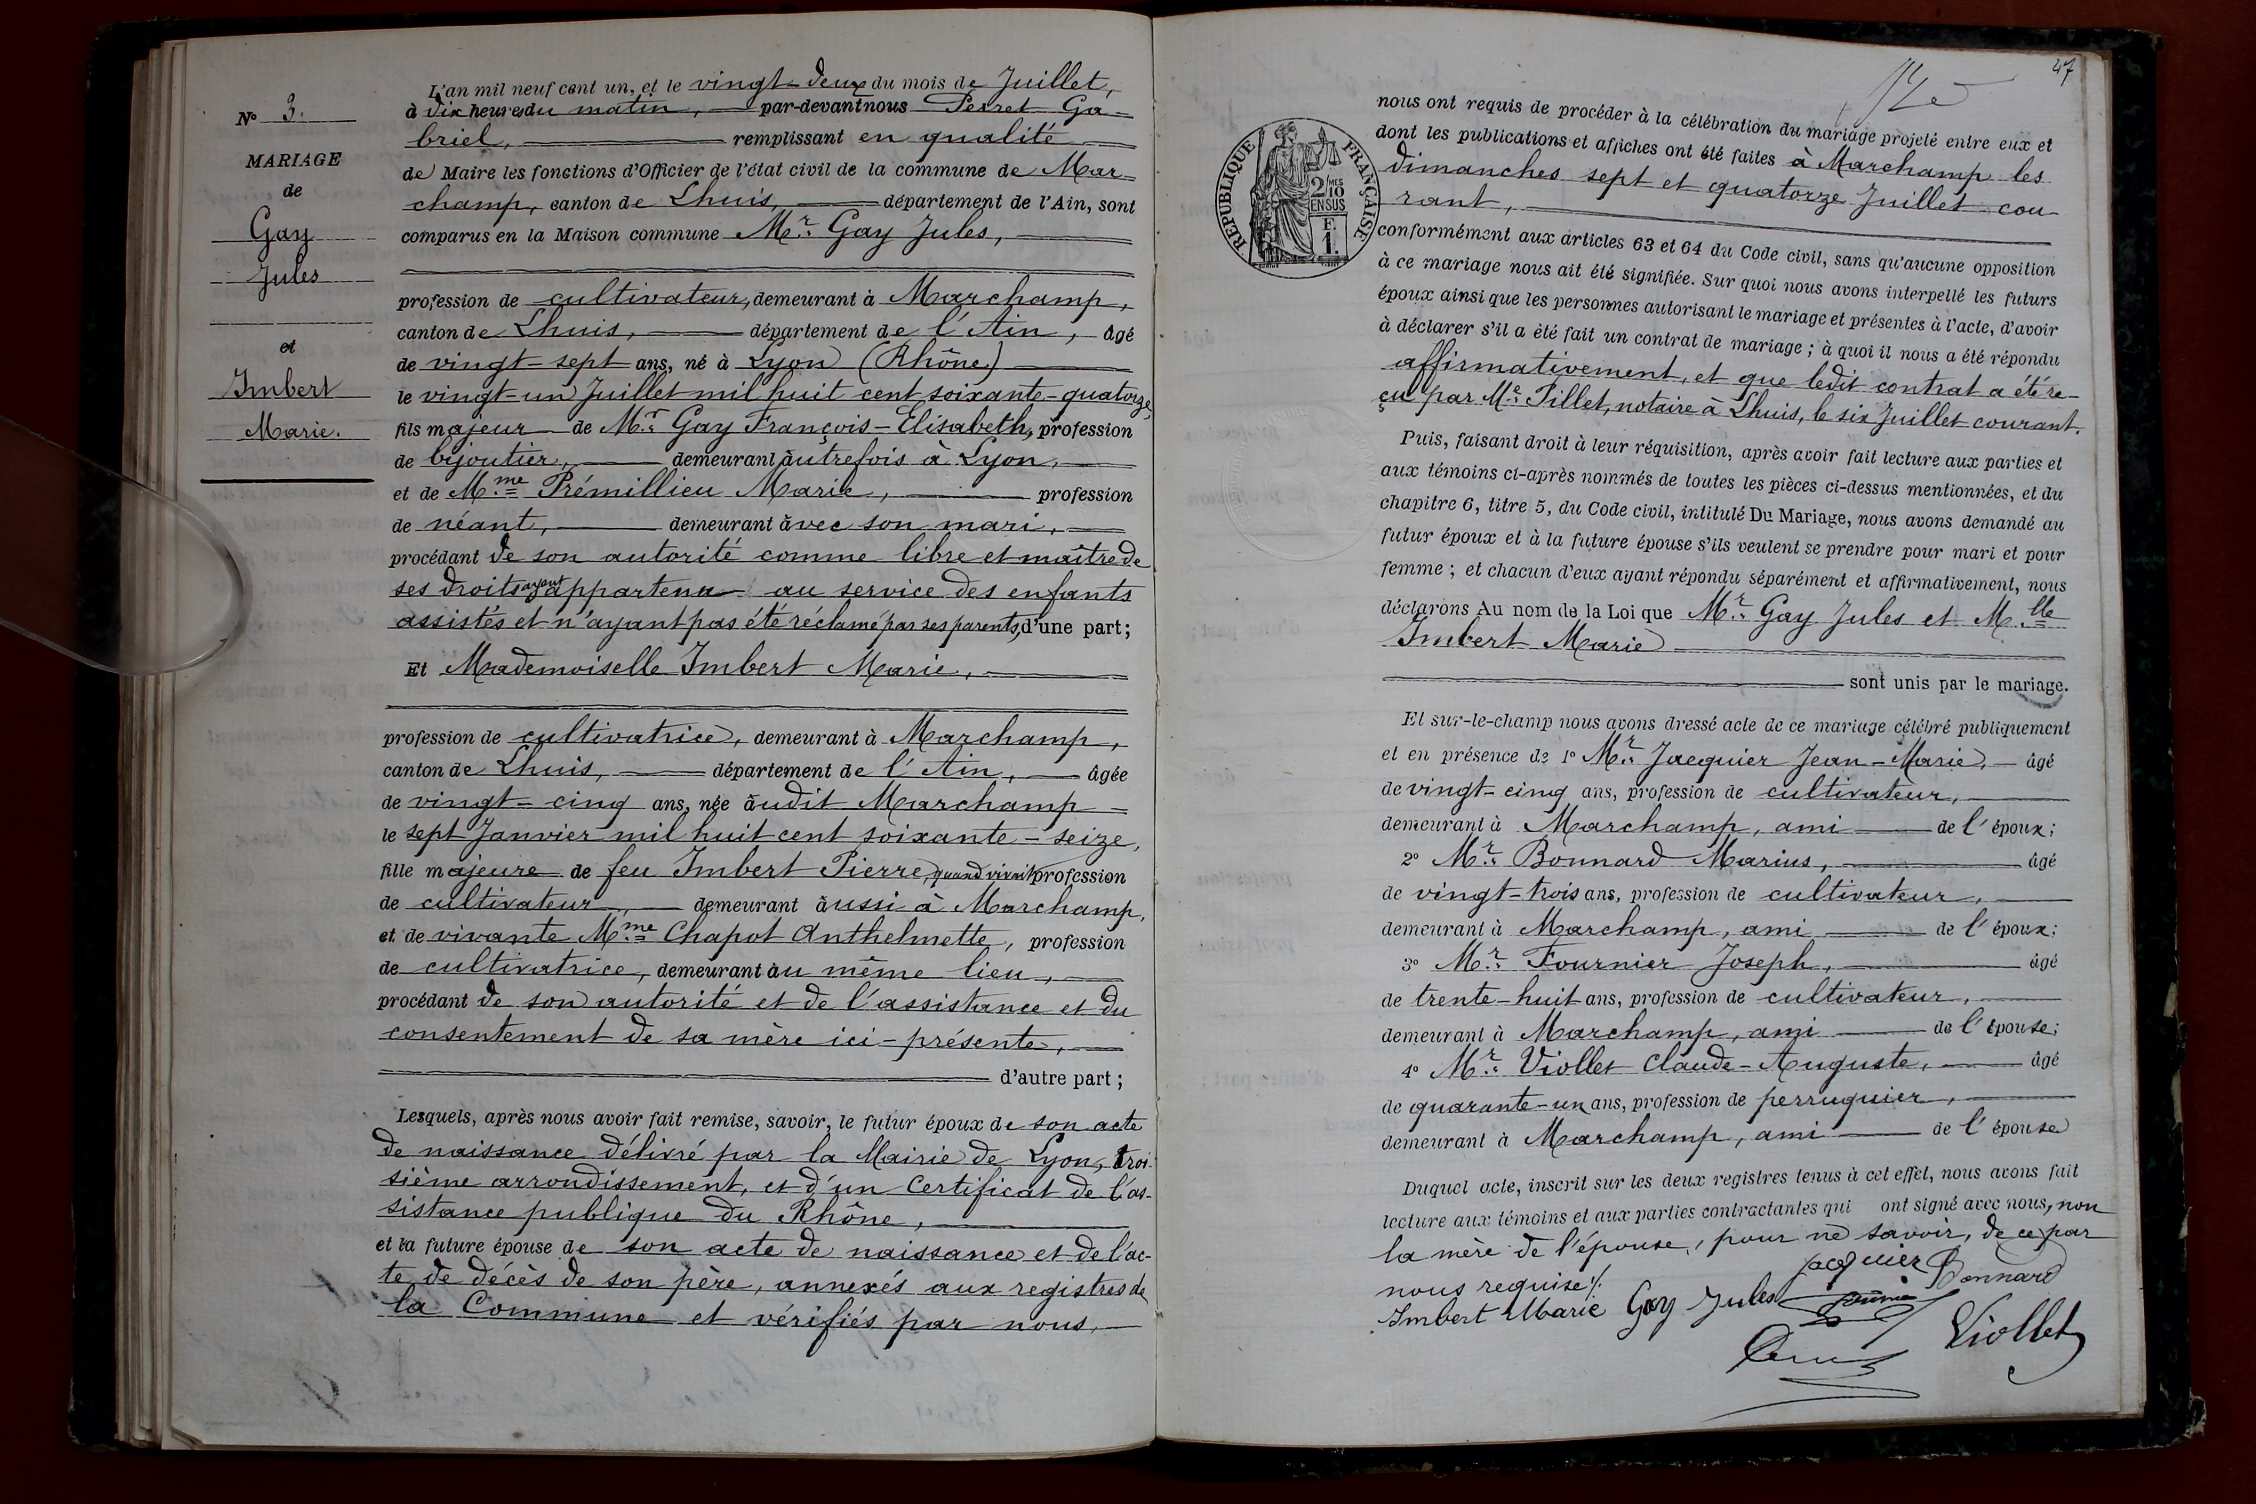 N° 3.
MARIAGE
de
Gay
Jules
et
Imbert
Marie.
L'an mil neuf cent un, et le vingt-deux du mois de Juillet,
à dix heures du matin, par-devant nous Perret Ga-
briel, remplissant en qualité
de Maire les fonctions d'Officier de l'état civil de la commune de Mar-
champ, canton de Lhuis, département de l'Ain, sont
comparus en la Maison commune Mr. Gay Jules,
profession de cultivateur, demeurant à Marchamp,
canton de Lhuis, département de l'Ain, âgé
de vingt-sept ans, né à Lyon (Rhône)
le vingt-un Juillet mil huit cent soixante-quatorze,
fils majeur de Mr. Gay François-Elisabeth, profession
de bijoutier, demeurant autrefois à Lyon,
et de Mme Prémillieu Marie, profession
de néant, demeurant avec son mari,
procédant de son autorité comme libre et maître de
ses droits ayant appartenu au service des enfants
assistés et n'ayant pas été réclamé par ses parents, d'une part;
Et Mademoiselle Imbert Marie,
profession de cultivatrice, demeurant à Marchamp,
canton de Lhuis, département de l'Ain, âgée
de vingt-cinq ans, née audit Marchamp
le sept Janvier mil huit cent soixante-seize,
fille majeure de feu Imbert Pierre, quand vivait profession
de cultivateur, demeurant aussi à Marchamp,
et de vivante Mme Chapot Anthelmette, profession
de cultivatrice, demeurant au même lieu,
procédant de son autorité et de l'assistance et du
consentement de sa mère ici-présente,
d'autre part;
Lesquels, après nous avoir fait remise, savoir, le futur époux de son acte
de naissance délivré par la Mairie de Lyon, troi-
sième arrondissement, et d'un Certificat de l'as-
sistance publique du Rhône,
et la future épouse de son acte de naissance et de l'ac-
te de décès de son père, annexés aux registres de
la Commune et vérifiés par nous,
47
RÉPUBLIQUE FRANÇAISE
2/MES
10
EN SUS
F.
1.
nous ont requis de procéder à la célébration du mariage projeté entre eux et
dont les publications et affiches ont été faites à Marchamp les
dimanches sept et quatorze Juillet cou-
rant,
conformément aux articles 63 et 64 du Code civil, sans qu'aucune opposition
à ce mariage nous ait été signifiée. Sur quoi nous avons interpellé les futurs
époux ainsi que les personnes autorisant le mariage et présentes à l'acte, d'avoir
à déclarer s'il a été fait un contrat de mariage; à quoi il nous a été répondu
affirmativement, et que ledit contrat a été re-
çu par Me. Pillet, notaire à Lhuis, le six Juillet courant.
Puis, faisant droit à leur réquisition, après avoir fait lecture aux parties et
aux témoins ci-après nommés de toutes les pièces ci-dessus mentionnées, et du
chapitre 6, titre 5, du Code civil, intitulé Du Mariage, nous avons demandé au
futur époux et à la future épouse s'ils veulent se prendre pour mari et pour
femme; et chacun d'eux ayant répondu séparément et affirmativement, nous
déclarons Au nom de la Loi que Mr. Gay Jules et Mlle
Imbert Marie
sont unis par le mariage.
Et sur-le-champ nous avons dressé acte de ce mariage célébré publiquement
et en présence de 1° Mr. Jacquier Jean-Marie, âgé
de vingt-cinq ans, profession de cultivateur,
demeurant à Marchamp, ami de l'époux;
2° Mr. Bonnard Marius, âgé
de vingt-trois ans, profession de cultivateur,
demeurant à Marchamp, ami de l'époux;
3° Mr. Fournier Joseph, âgé
de trente-huit ans, profession de cultivateur,
demeurant à Marchamp, ami de l'épouse;
4° Mr. Viollet Claude-Auguste, âgé
de quarante-un ans, profession de perruquier,
demeurant à Marchamp, ami de l'épouse
Duquel acte, inscrit sur les deux registres tenus à cet effet, nous avons fait
lecture aux témoins et aux parties contractantes qui ont signé avec nous, non
la mère de l'épouse, pour ne savoir, de ce par
nous requise./.
Jacquier Bonnard
Imbert Marie Gay Jules
Viollet